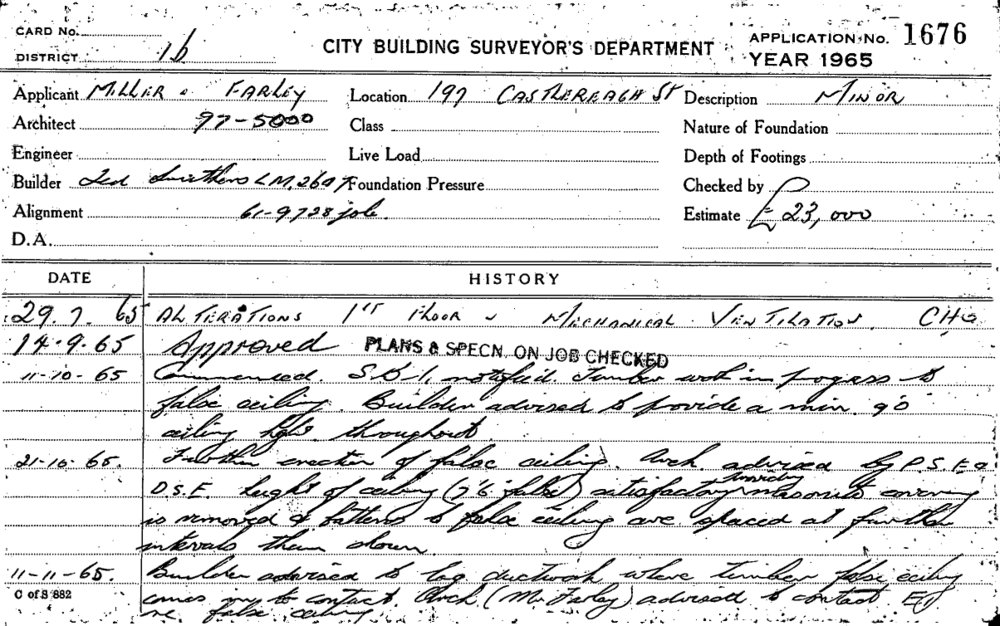 CARD No.
DISTRICT 1b
CITY BUILDING SURVEYOR'S DEPARTMENT
APPLICATION No. 1676
YEAR 1965
Applicant MILLER & FARLEY Location 197 CASTLEREAGH ST Description MINOR
Architect 97-5000 Class Nature of Foundation
Engineer Live Load Depth of Footings
Builder Ted Smithers L M, 2697 Foundation Pressure Checked by
Alignment 61-9728 job. Estimate £ 23,000
D.A.
DATE HISTORY
29.7.65 ALTERATIONS 1ST FLOOR & MECHANICAL VENTILATION. CHQ
14-9-65 Approved PLANS & SPECN. ON JOB CHECKED
11-10-65 Commenced. S.B.I. notified. Timber work in progress to
false ceiling. Builder advised to provide a min. 9'0
ceiling hght. throughout
21-10-65. Further erection of false ceiling. Arch. advised by P.S.E &
D.S.E. height of ceiling (7'6" false) satisfactory providing masonite covering
is removed & battens to false ceiling are spaced at further
intervals than shown.
11-11-65. Builder advised to lag ductwork where timber false ceiling
comes in to contact. Arch. (Mr Farley) advised to contact
re false ceiling
C of S 882